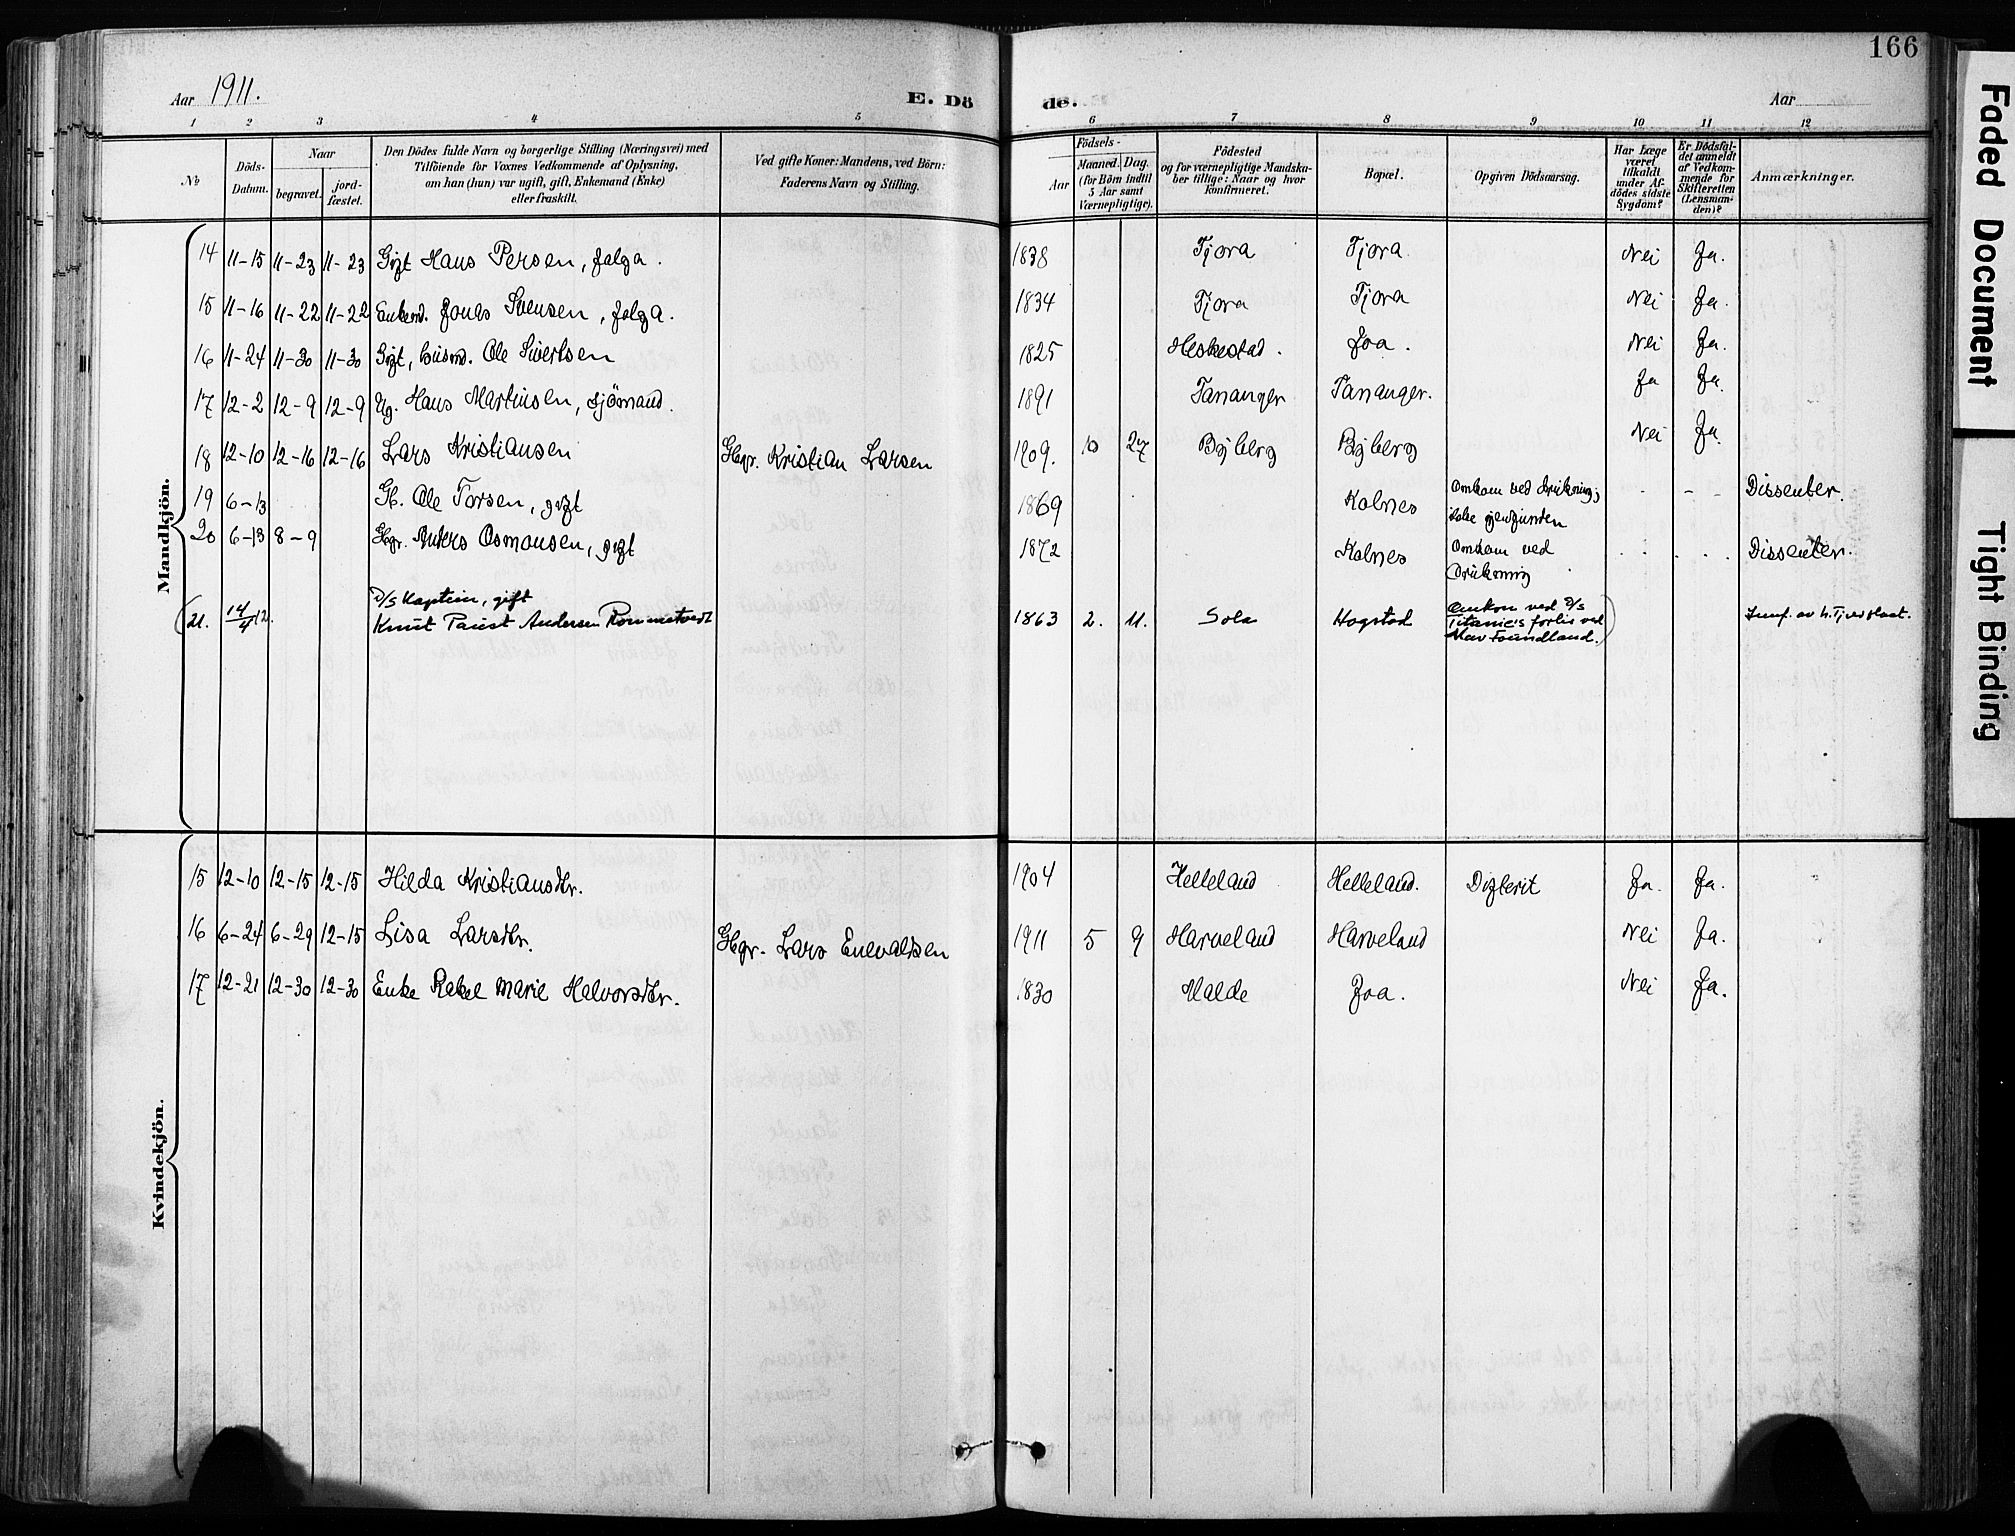 166
Aar 1911.
E. Dö de.
Aar
1 2 3 4 5 6 7 8 9 10 11 12
No
Döds-Datum.
Naar
begravet.
jord-fæstet.
Den Dödes fulde Navn og borgerlige Stilling (Næringsvei) med
Tilföiende for Voxnes Vedkommende af Oplysning,
om han (hun) var ugift, gift, Enkemand (Enke)
eller fraskilt.
Ved gifte Koner: Mandens, ved Börn:
Faderens Navn og Stilling.
Födsels-
Aar
Maaned. Dag.
(for Börn indtil
5 Aar samt
Værnepligtige).
Födested
og for værnepligtige Mandska-
ber tillige: Naar og hvor
konfirmeret.
Bopæl.
Opgiven Dödsaarsag.
Har Læge
været
tilkaldt
under Af-
dödes sidste
Sygdom?
Er Dödsfal-
det anmeldt
af Vedkom-
mende for
Skifteretten
(Lensman-
den)?
Anmærkninger.
Mandkjön.
14 11-15 11-23 11-23 Gift Hans Persen, følga. 1838 Tjora Tjora. Nei Ja.
15 11-16 11-22 11-22 Enkem. Jonas Svensen, følga. 1834 Tjora Tjora Nei Ja.
16 11-24 11-30 11-30 Gift, husm. Ole Sivertsen 1825 Heskestad. Joa. Nei Ja.
17 12-2 12-9 12-9 Ug. Hans Martinsen, sjömand. 1891 Tananger Tananger. Ja Ja.
18 12-10 12-16 12-16 Lars Kristiansen Gbgr. Kristian Larsen 1909. 10 27 Byberg Byberg Nei Ja.
19 6-13 G. Ole Torsen, gift 1869 Kolnes Omkom ved drukning; ikke gjenfunden Dissenter.
20 6-13 8-9 Gbgr. Anders Osmonsen, gift 1872 Kolnes Omkom ved Drukning Dissenter.
(21. 14/4 12. D/S Kaptein, gift
Knut Paust Andersen Rommetvedt 1863 2. 11. Sola Hogstad Omkom ved D/s
Titanic's forlis ved
New Foundland.)
Kvindekjön.
15 12-10 12-15 12-15 Hilda Kristiansdtr. 1904 Helleland Helleland. Difterit Ja. Ja.
16 6-24 6-29 12-15 Lisa Larsdtr. Gbgr. Lars Enevaldsen 1911 5 9 Harveland Harveland Nei Ja.
17 12-21 12-30 12-30 Enke Rakel Marie Halvorsdtr. 1830 Malde Joa. Nei Ja.
Faded Document
Tight Binding